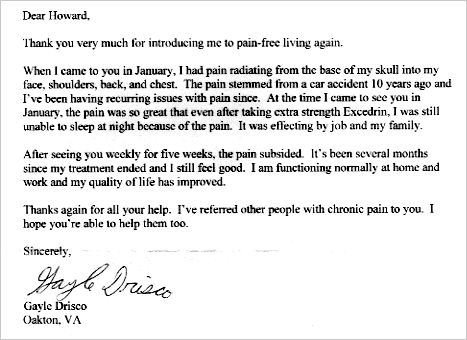 Dear Howard,
Thank you very much for introducing me to pain-free living again.
When I came to you in January, I had pain radiating from the base of my skull into my
face, shoulders, back, and chest. The pain stemmed from a car accident 10 years ago and
I've been having recurring issues with pain since. At the time I came to see you in
January, the pain was so great that even after taking extra strength Excedrin, I was still
unable to sleep at night because of the pain. It was effecting by job and my family.
After seeing you weekly for five weeks, the pain subsided. It's been several months
since my treatment ended and I still feel good. I am functioning normally at home and
work and my quality of life has improved.
Thanks again for all your help. I've referred other people with chronic pain to you. I
hope you're able to help them too.
Sincerely,
Gayle Drisco
Gayle Drisco
Oakton, VA